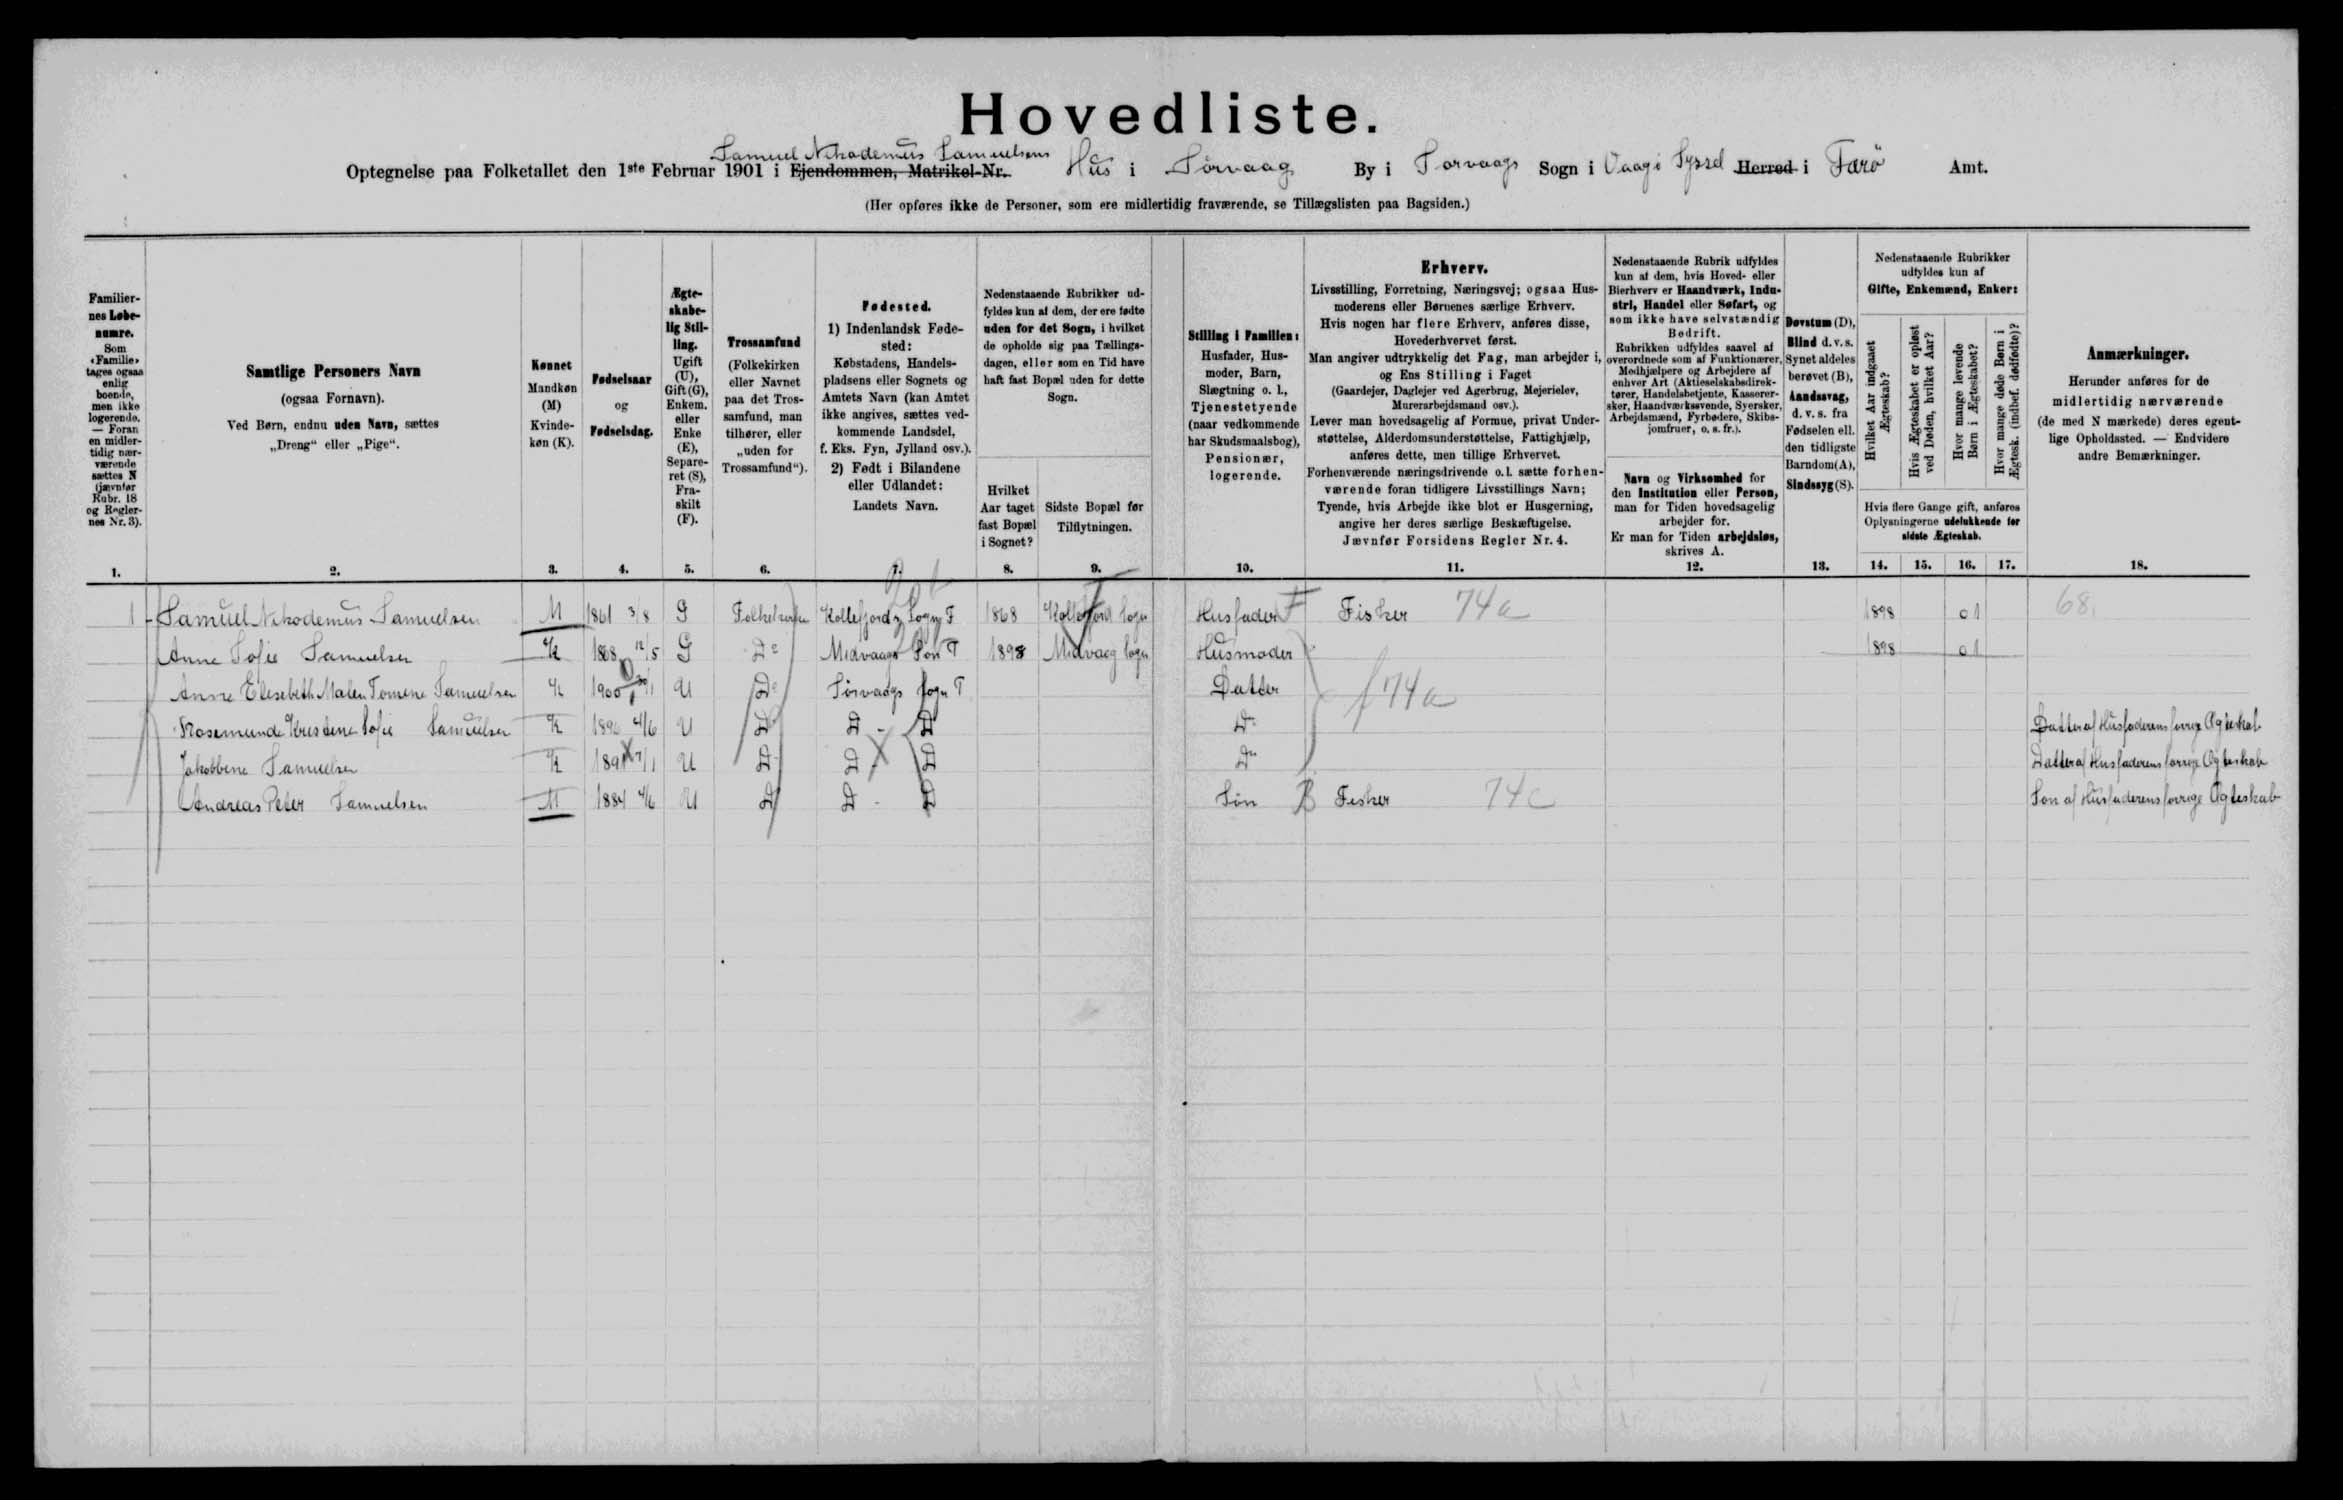 Hovedliste.
Samuel Nikodemus Samuelsens
Optegnelse paa Folketallet den 1ste Februar 1901 i Ejendommen, Matrikel-Nr. Hus i Sørvaag By i Sørvaags Sogn i Vaagø Syssel Herred i Færø Amt.
(Her opføres ikke de Personer, som ere midlertidig fraværende, se Tillægslisten paa Bagsiden.)
Familier-
nes Løbe-
numre.
Som
«Familie»
tages ogsaa
enlig
boende,
men ikke
logerende.
— Foran
en midler-
tidig nær-
værende
sættes N
(jævnfør
Rubr. 18
og Regler-
nes Nr. 3).
1.
Samtlige Personers Navn
(ogsaa Fornavn).
Ved Børn, endnu uden Navn, sættes
„Dreng“ eller „Pige“.
2.
Kønnet
Mandkøn
(M)
Kvinde-
køn (K).
3.
Fødselsaar
og
Fødselsdag.
4.
Ægte-
skabe-
lig Stil-
ling.
Ugift
(U),
Gift (G),
Enkem.
eller
Enke
(E),
Separe-
ret (S),
Fra-
skilt
(F).
5.
Trossamfund
(Folkekirken
eller Navnet
paa det Tros-
samfund, man
tilhører, eller
„uden for
Trossamfund“).
6.
Fødested.
1) Indenlandsk Føde-
sted:
Købstadens, Handels-
pladsens eller Sognets og
Amtets Navn (kan Amtet
ikke angives, sættes ved-
kommende Landsdel,
f. Eks. Fyn, Jylland osv.).
2) Født i Bilandene
eller Udlandet:
Landets Navn.
7.
Nedenstaaende Rubrikker ud-
fyldes kun af dem, der ere fødte
uden for det Sogn, i hvilket
de opholde sig paa Tællings-
dagen, eller som en Tid have
haft fast Bopæl uden for dette
Sogn.
Hvilket
Aar taget
fast Bopæl
i Sognet?
8.
Sidste Bopæl før
Tilflytningen.
9.
Stilling i Familien:
Husfader, Hus-
moder, Barn,
Slægtning o. l.,
Tjenestetyende
(naar vedkommende
har Skudsmaalsbog),
Pensionær,
logerende.
10.
Erhverv.
Livsstilling, Forretning, Næringsvej; ogsaa Hus-
moderens eller Børnenes særlige Erhverv.
Hvis nogen har flere Erhverv, anføres disse,
Hovederhvervet først.
Man angiver udtrykkelig det Fag, man arbejder i,
og Ens Stilling i Faget
(Gaardejer, Daglejer ved Agerbrug, Mejerielev,
Murerarbejdsmand osv.).
Lever man hovedsagelig af Formue, privat Under-
støttelse, Alderdomsunderstøttelse, Fattighjælp,
anføres dette, men tillige Erhvervet.
Forhenværende næringsdrivende o. l. sætte forhen-
værende foran tidligere Livsstillings Navn;
Tyende, hvis Arbejde ikke blot er Husgerning,
angive her deres særlige Beskæftigelse.
Jævnfør Forsidens Regler Nr. 4.
11.
Nedenstaaende Rubrik udfyldes
kun af dem, hvis Hoved- eller
Bierhverv er Haandværk, Indu-
stri, Handel eller Søfart, og
som ikke have selvstændig
Bedrift.
Rubrikken udfyldes saavel af
overordnede som af Funktionærer,
Medhjælpere og Arbejdere af
enhver Art (Aktieselskabsdirek-
tører, Handelsbetjente, Kasserer-
sker, Haandværkssvende, Syersker,
Arbejdsmænd, Fyrbødere, Skibs-
jomfruer, o. s. fr.).
Navn og Virksomhed for
den Institution eller Person,
man for Tiden hovedsagelig
arbejder for.
Er man for Tiden arbejdsløs,
skrives A.
12.
Døvstum (D),
Blind d. v. s.
Synet aldeles
berøvet (B),
Aandssvag,
d. v. s. fra
Fødselen ell.
den tidligste
Barndom (A),
Sindssyg (S).
13.
Nedenstaaende Rubrikker
udfyldes kun af
Gifte, Enkemænd, Enker:
Hvilket Aar indgaaet
Ægteskab?
Hvis Ægteskabet er opløst
ved Døden, hvilket Aar?
Hvor mange levende
Børn i Ægteskabet?
Hvor mange døde Børn i
Ægtesk. (indbef. dødfødte)?
Hvis flere Gange gift, anføres
Oplysningerne udelukkende for
sidste Ægteskab.
14. 15. 16. 17.
Anmærkninger.
Herunder anføres for de
midlertidig nærværende
(de med N mærkede) deres egent-
lige Opholdssted. — Endvidere
andre Bemærkninger.
18.
1 Samuel Nikodemus Samuelsen M 1861 3/8 G Folkekirken Kollefjords Sogn F 1868 Kollefjord Sogn Husfader F Fisker 74a 1898 01 68
Anne Sofie Samuelsen K 1868 12/5 G Do Midvaags Son F 1898 Midvaag Sogn Husmoder 1898 01
Anne Elisebeth Malen Tomine Samuelsen K 1900 30/1 U Do Sørvaags Sogn F Datter f 74a
Rosemunde Kristine Sofie Samuelsen K 1896 4/6 U D D - D Do Datter af Husfaderens forrige Ægteskab
Jakobbine Samuelsen K 1891 7/1 U D D - D Do Datter af Husfaderens forrige Ægteskab
Andreas Peter Samuelsen M 1884 4/6 U D D - D Søn B Fisker 74c Søn af Husfaderens forrige Ægteskab